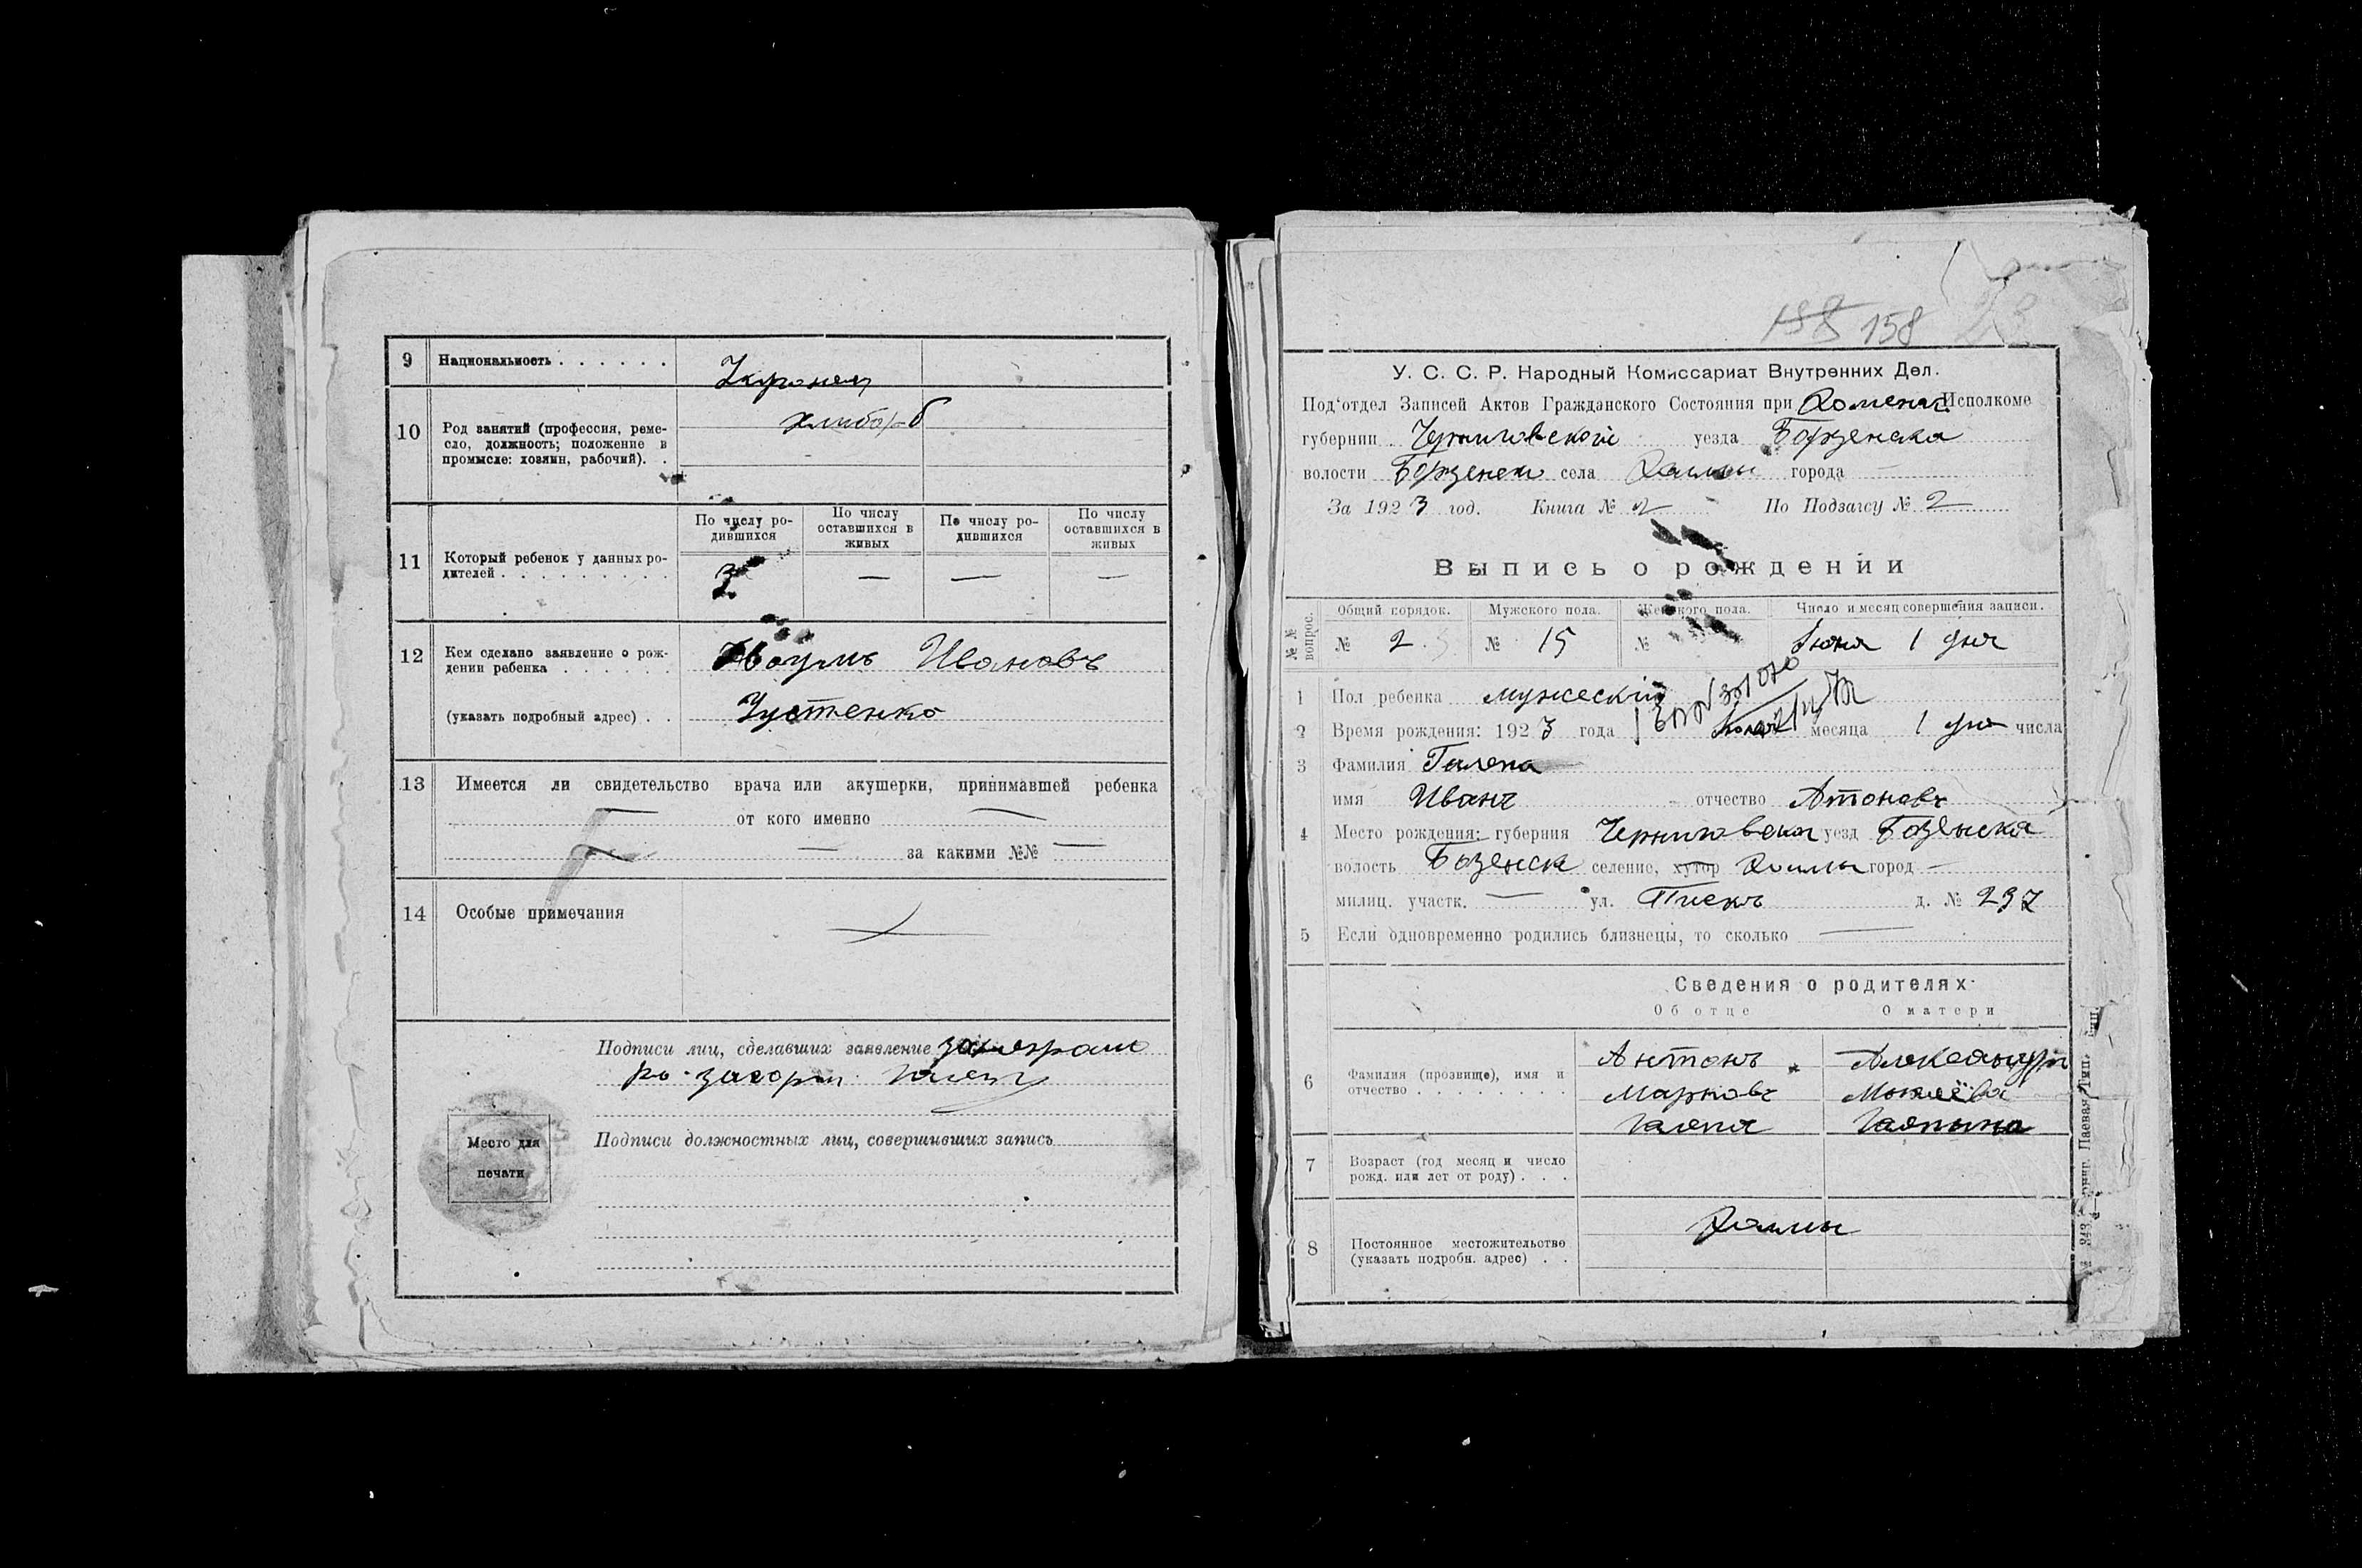 9 Национальность . . . . . .
10 Род занятий (профессия, реме-
сло, должность; положение в
промысле: хозяин, рабочий). .
11 Который ребенок у данных ро-
дителей . . . . . . . . .
По числу ро-
дившихся
По числу
оставшихся в
живых
По числу ро-
дившихся
По числу
оставшихся в
живых
— — —
12 Кем сделано заявление о рож-
дении ребенка . . . . . . Наумъ Ивановъ
(указать подробный адрес) . . Устенко
13 Имеется ли свидетельство врача или акушерки, принимавшей ребенка
— от кого именно —
— за какими №№ —
14 Особые примечания
Подписи лиц, сделавших заявление
Место для
печати
Подписи должностных лиц, совершивших запись
188 158
У. С. С. Р. Народный Комиссариат Внутренних Дел.
Под'отдел Записей Актов Гражданского Состояния при Исполкоме
губернии Черниговской уезда Борзенска
волости Борзенск села города —
За 1923 год. Книга № 2 По Подзагсу № 2
Выпись о рождении
№№ вопрос.
Общий порядок. Мужского пола. Женского пола. Число и месяц совершения записи.
№ 23 № 15 № Июня 1 дня
1 Пол ребенка мужескій
2 Время рождения: 1923 года месяца 1 дня числа
3 Фамилия Галепа
имя Иванъ отчество Атоновъ
4 Место рождения: губерния Черниговска уезд Бозенска
волость Бозенск селение, хутор город —
милиц. участк. — ул. Пискъ д. № 237
5 Если одновременно родились близнецы, то сколько —
Сведения о родителях
Об отце О матери
6 Фамилия (прозвище), имя и
отчество . . . . . . . .
Антонъ
Марковъ
Галепа
Александра
7 Возраст (год месяц и число
рожд. или лет от роду) . . .
8 Постоянное местожительство
(указать подробн. адрес) . .